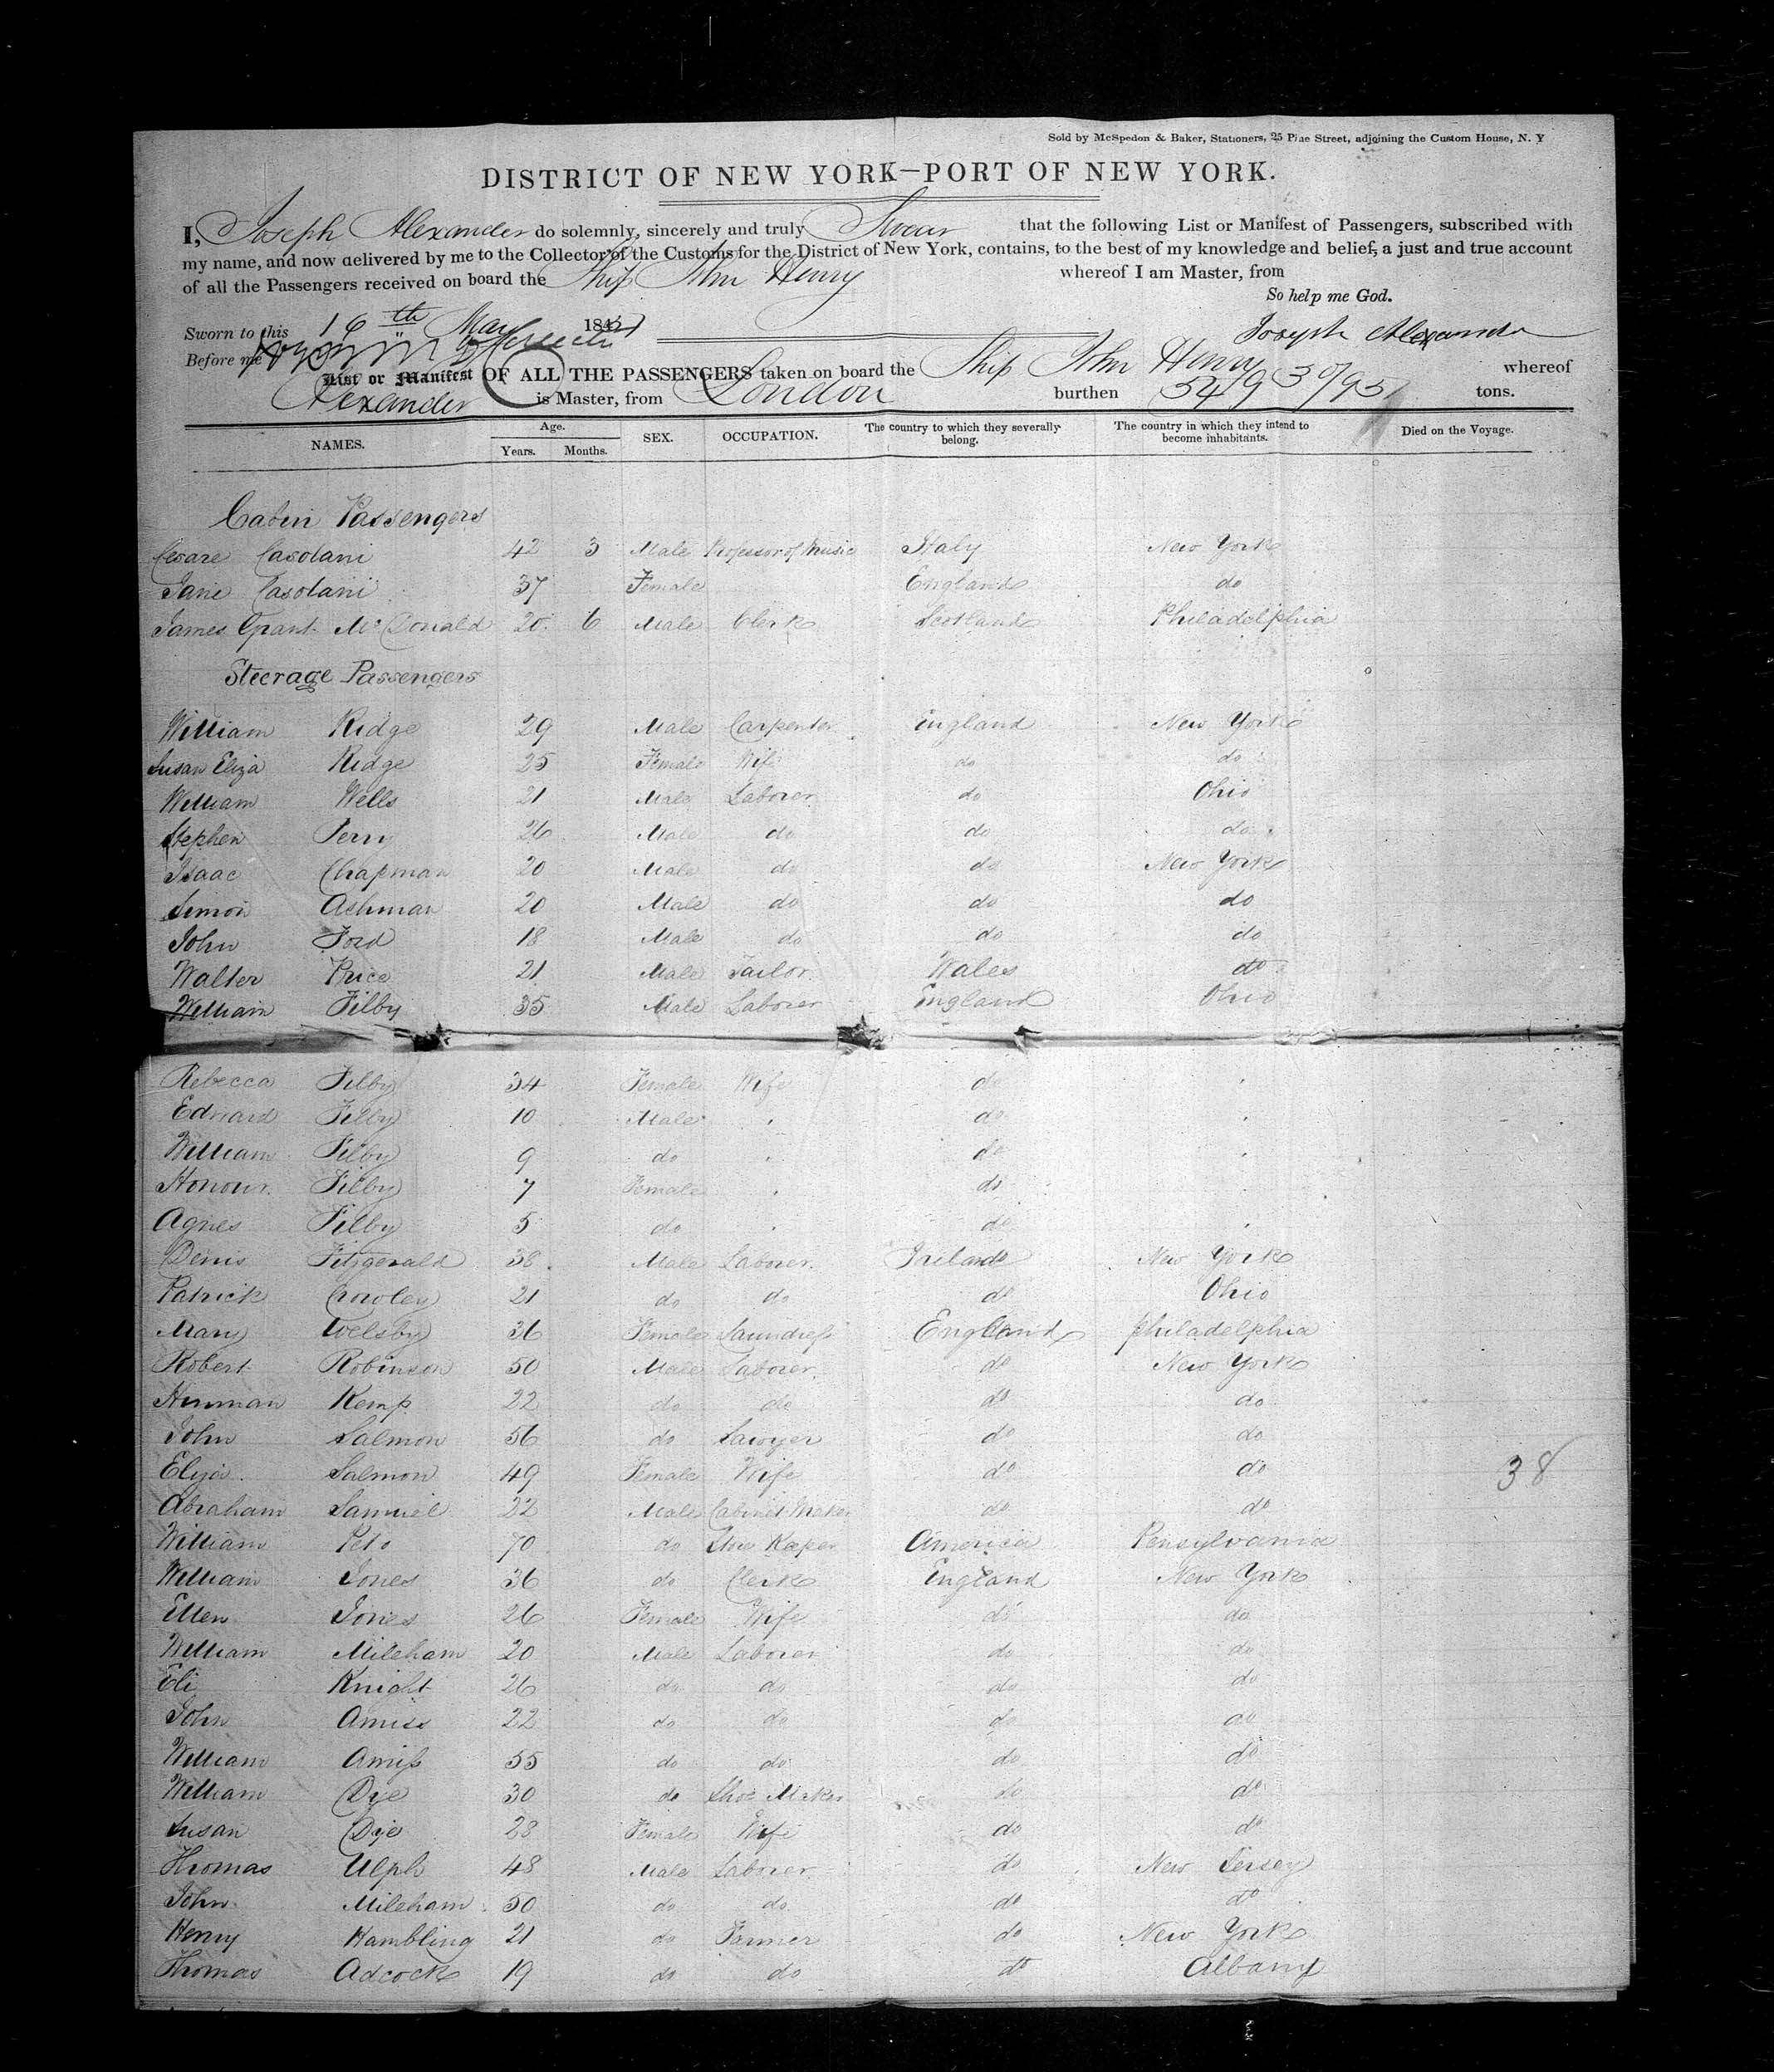 Sold by McSpedon & Baker, Stationers, 25 Pine Street, adjoining the Custom House, N. Y
DISTRICT OF NEW YORK—PORT OF NEW YORK.
I, Joseph Alexander do solemnly, sincerely and truly Swear that the following List or Manifest of Passengers, subscribed with
my name, and now delivered by me to the Collector of the Customs for the District of New York, contains, to the best of my knowledge and belief, a just and true account
of all the Passengers received on board the Ship John Henry whereof I am Master, from
So help me God.
Sworn to this 16th May 184
Joseph Alexander
Before me
List or Manifest OF ALL THE PASSENGERS taken on board the Ship John Henry whereof
Alexander is Master, from London burthen 549 30/95 tons.
NAMES. Age. Years. Months. SEX. OCCUPATION. The country to which they severally belong. The country in which they intend to become inhabitants. Died on the Voyage.
Cabin Passengers
Cesare Casolani 42 3 Male Professor of Music Italy New York
Jane Casolani 37 Female England do
James Grant McDonald 20 6 Male Clerk Scotland Philadelphia
Steerage Passengers
William Ridge 29 Male Carpenter England New York
Susan Eliza Ridge 25 Female Wife do do
William Wells 21 Male Laborer do Ohio
Stephen Perry 26 Male do do do
Isaac Chapman 20 Male do do New York
Simon Ashman 20 Male do do do
John Ford 18 Male do do do
Walter Price 21 Male Tailor Wales do
William Filby 35 Male Laborer England Ohio
Rebecca Filby 34 Female Wife do "
Edward Filby 10 Male " do "
William Filby 9 do " do "
Honour Filby 7 Female " do "
Agnes Filby 5 do " do "
Denis Fitzgerald 38 Male Laborer Ireland New York
Patrick Crowley 21 do do do Ohio
Mary Welsby 36 Female Laundress England Philadelphia
Robert Robinson 50 Male Laborer do New York
Herman Kemp 22 do do do do
John Salmon 56 do Sawyer do do
Eliza Salmon 49 Female Wife do do
38
Abraham Samuel 22 Male Cabinet Maker do do
William Peto 70 do Store Keeper America Pensylvania
William Jones 36 do Clerk England New York
Ellen Jones 26 Female Wife do do
William Mileham 20 Male Laborer do do
Eli Knight 26 do do do do
John Amiss 22 do do do do
William Amiss 55 do do do do
William Dye 30 do Shoe Maker do do
Susan Dye 28 Female Wife do do
Thomas Ulph 48 Male Laborer do New Jersey
John Mileham 50 do do do do
Henry Hambling 21 do Farmer do New York
Thomas Adcock 19 do do do Albany